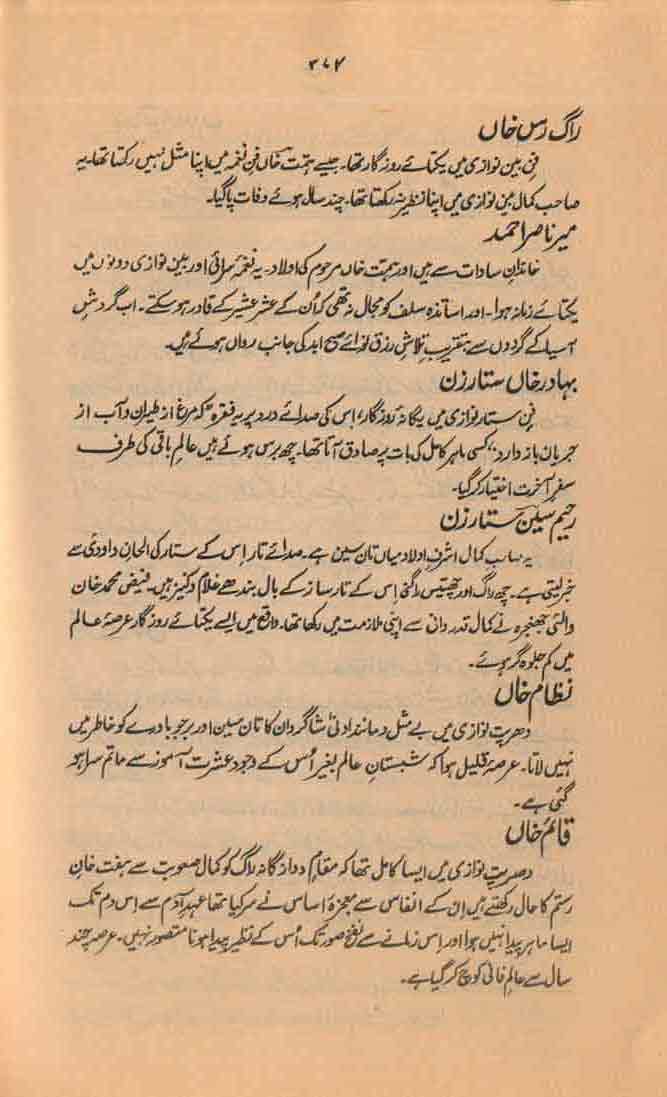 ۳۷۴
راگ رس خاں
فنِ بین نوازی میں یکتائے روزگار تھا۔ جیسے ہمت خاں فنِ نغمہ میں اپنا مثل نہیں رکھتا تھا۔ یہ
صاحب کمال بین نوازی میں اپنا نظیر نہ رکھتا تھا۔ چند سال ہوئے وفات پا گیا۔
میر ناصر احمد
خاندانِ سادات سے ہیں اور ہمت خاں مرحوم کی اولاد۔ یہ نغمہ سرائی اور بین نوازی دونوں میں
یکتائے زمانہ ہوا۔ اور اساتذہ سلف کو مجال نہ تھی کہ اُن کے عشر عشیر کے قادر ہو سکتے۔ اب گردشِ
آسیا کے گردوں سے بتقریبِ تلاشِ رزق نوائے صبح ابد کی جانب رواں ہوئے ہیں۔
بہادر خاں ستار زن
فنِ ستار نوازی میں یگانۂ روزگار، اس کی صدائے درد پر یہ فقرہ "کہ مرغ از طیران و آب از
جریان باز دارد" کسی ماہر کامل کی بات پر صادق آتا تھا۔ چھ برس ہوئے ہیں عالمِ باقی کی طرف
سفرِ آخرت اختیار کر گیا۔
رحیم سین ستار زن
یہ صاحب کمال اشرفِ اولاد میاں تان سین ہے۔ صدائے تار اس کے ستار کی الحانِ داودی سے
خبر لیتی ہے۔ چھ راگ اور چھتیس راگنی اِس کے تار ساز کے بال بندھے غلام و کنیز ہیں۔ فیض محمد خان
والئی جھجرہ نے کمال قدردانی سے اپنی ملازمت میں رکھا تھا۔ واقع میں ایسے یکتائے روزگار عرصۂ عالم
میں کم جلوہ گر ہوئے۔
نظام خاں
دھرپت نوازی میں بے مثل و مانند ادنیٰ شاگردان کا تان سین اور برجو باورے کو خاطر میں
نہیں لاتا۔ عرصۂ قلیل ہوا کہ شبستانِ عالم بغیر اُس کے وجود عشرت آموز سے ماتم سرا ہو
گئی ہے۔
قائم خاں
دھرپت نوازی میں ایسا کامل تھا کہ مقامِ دوازگانہ راگ کو کمال صعوبت سے ہفت خانِ
رستم کا حال رکھتے ہیں اِن کے انفاس سے معجزہ اساس نے سر کیا تھا عہدِ آدم سے اِس دم تک
ایسا ماہر پیدا نہیں ہوا اور اِس زمانے سے نفخ صور تک اُس کے نظیر پیدا ہونا متصور نہیں۔ عرصہ چند
سال سے عالمِ فانی کو پچ کر گیا ہے۔